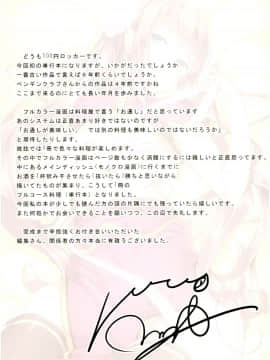 どうも100円ロッカーです。
今回初の単行本になりますが、いかがだったでしょうか
一番古い作品で言えば6年前くらいでしょうか
ペンギンクラブさんからの作品は4年前ですかね
ここまで来るのにとても長い年月を歩みました。
フルカラー漫画は料理屋で言う「お通し」だと思っています
あのシステムは正直あまり好きではないのですが
「お通しが美味しい、では別の料理も美味しいのではないだろうか」
と期待したりします。
雑誌では「巻で色々な料理が楽しめます。
その中でフルカラー漫画はページ数も少なく満腹にするには難しいと正直思ってます。
中にあるメインディッシュ(モノクロ漫画)に行くまでに
お酒を1杯飲みすさせたら「抜いたら」勝ちと思いながら
描いてたものが集まり、こうして1冊の
フルコース料理(単行本)となりました。
今回私の本が少しでも読んだ方の頭の片隅にでも残っていたら嬉しいです。
また何処かでお会いできることを願いつつ、この辺で失礼します。
完成まで辛抱強くお付き合いいただいた
編集さん、関係者の方々本当に有難うございました。